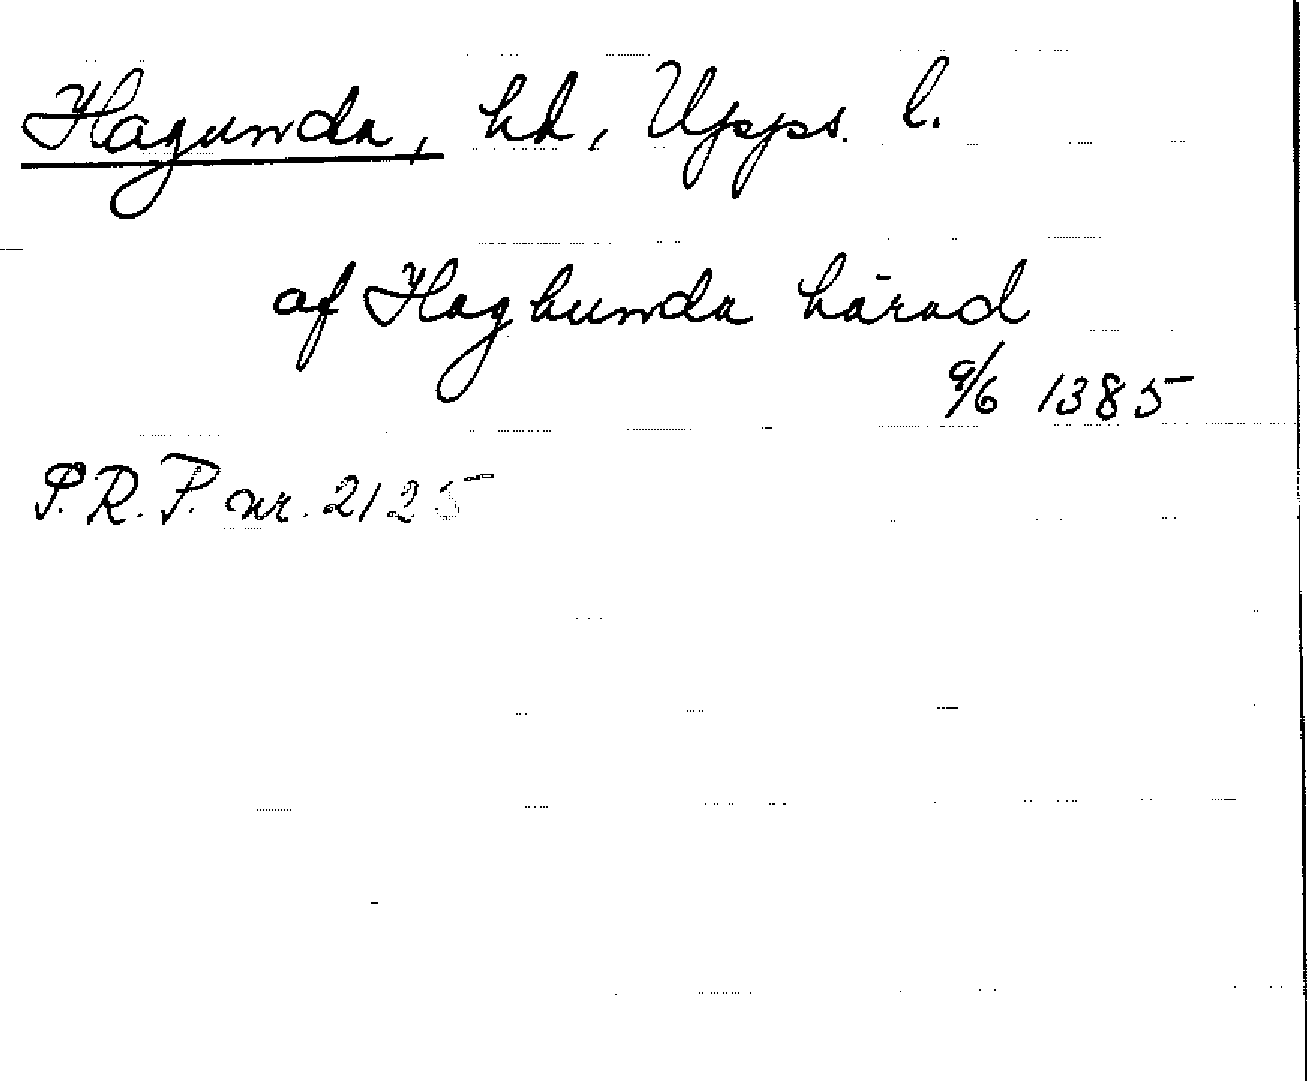 Hagunda, hd, Upps. l.
af Haghunda härad
9/6 1385
S.R.P. nr. 2125